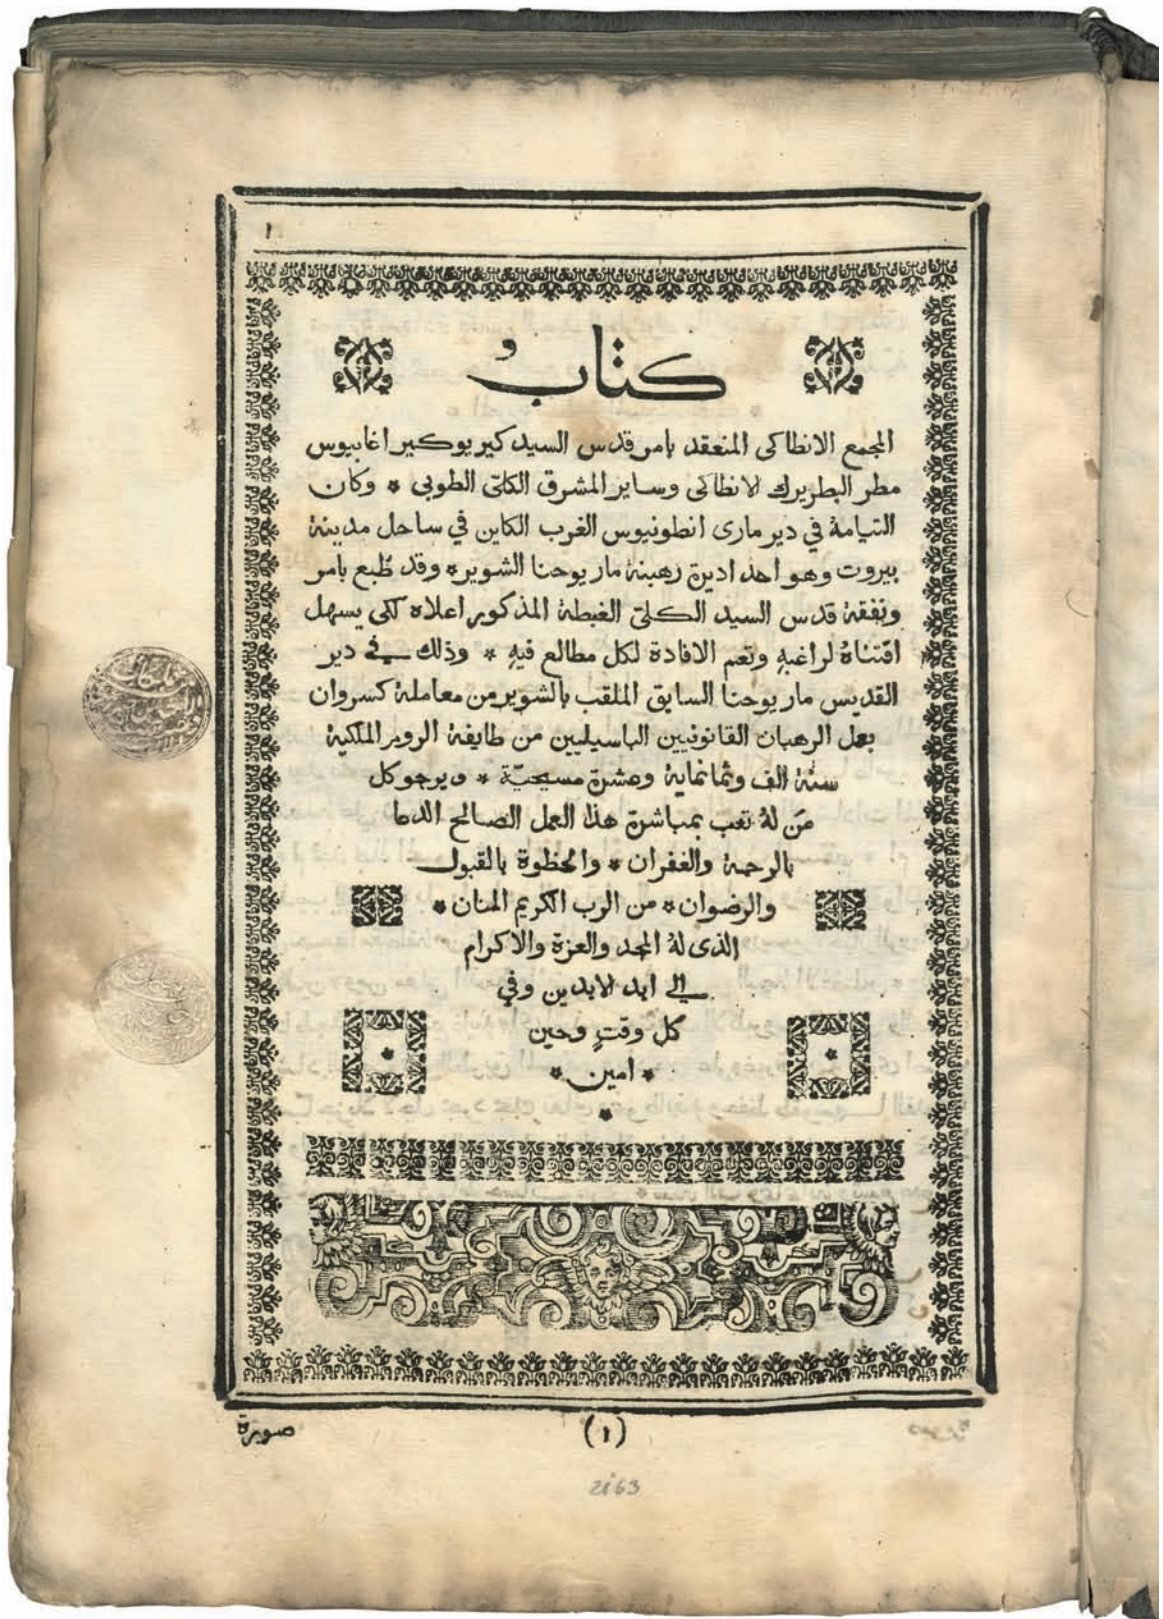 ١
كتاب
المجمع الانطاكى المنعقد بامر قدس السيد كير يوكير اغابيوس
مطر البطريرك لانطاكى وساير المشرق الكلّى الطوبى * وكان
التيامهُ في دير مارى انطونيوس الغرب الكاين في ساحل مدينة
بيروت وهو احد اديرة رهبنة مار يوحنا الشوير * وقد طُبع بامر
ونفقة قدس السيد الكلىّ الغبطة المذكور اعلاه لكى يسهل
اقتناهُ لراغبهِ وتعم الافادة لكل مطالع فيهِ * وذلك في دير
القديس مار يوحنا السابق الملقب بالشوير من معاملة كسروان
بعمل الرهبان القانونيين الباسيليين من طايفة الروم الملكية
سنة الف وثمانماية وعشرة مسيحيّة * ويرجو كل
مَن لهُ تعب بمباشرة هذا العمل الصالح الدعا
بالرحمة والغفران * والحظوة بالقبول
والرضوان * من الرب الكريم المنان *
الذى لهُ المجد والعزة والاكرام
الي ابد لابدين وفي
كل وقتٍ وحين
* امين *
*
صورة
(١)
2163